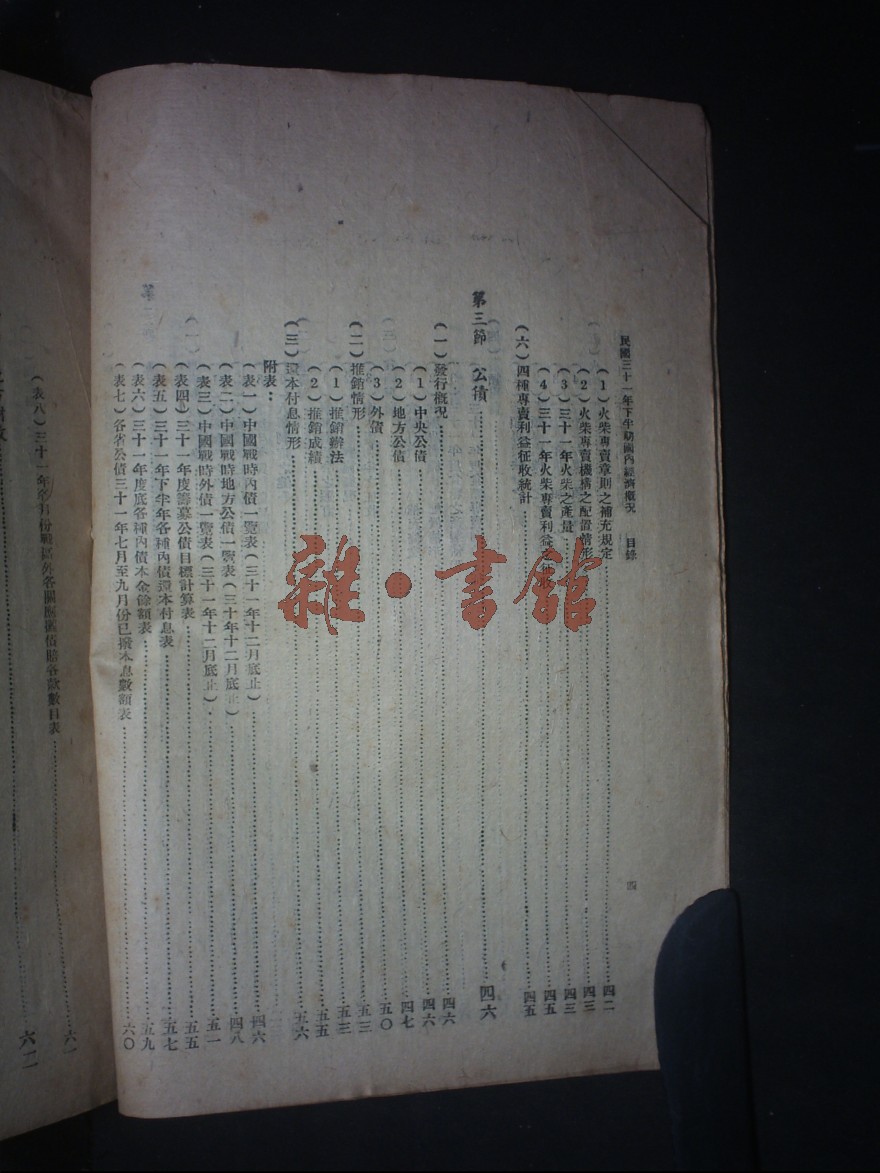 民國三十一年下半期國內經濟概況 目錄
四
(1)火柴專賣章則之補充規定 四二
(2)火柴專賣機構之配置情形 四三
(3)三十一年火柴之產量 四三
(4)三十一年火柴專賣利益 四五
(六)四種專賣利益征收統計 四五
第三節 公債 四六
(一)發行概況 四六
(1)中央公債 四六
(2)地方公債 四七
(3)外債 五〇
(二)推銷情形 五三
(1)推銷辦法 五三
(2)推銷成績 五五
(三)還本付息情形 五六
附表:
(表一)中國戰時內債一覽表(三十一年十二月底止) 四六
(表二)中國戰時地方公債一覽表(三十年十二月底止) 四八
(表三)中國戰時外債一覽表(三十一年十二月底止) 五一
(表四)三十一年度籌募公債目標計算表 五五
(表五)三十一年下半年各種內債還本付息表 五七
(表六)三十一年度底各種內債本金餘額表 五九
(表七)各省公債三十一年七月至九月份已撥本息數額表 六〇
(表八)三十一年各月份戰區外各關應攤債賠各款數目表 六一
六二
雜·書館